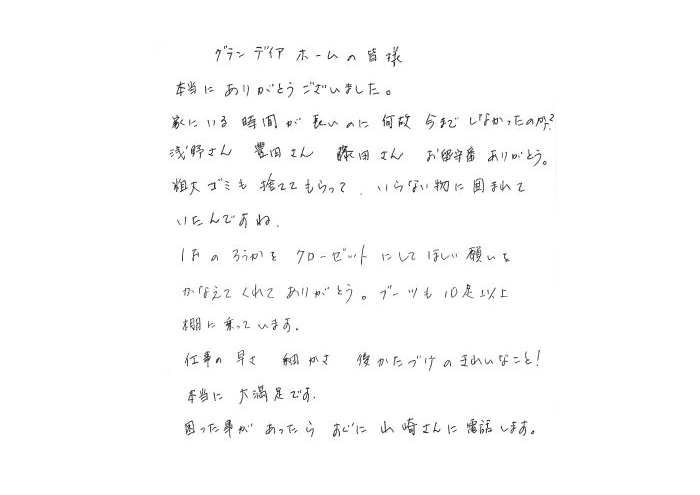 グランディアホームの皆様
本当にありがとうございました。
家にいる時間が長いのに何故今までしなかったのか?
浅野さん 豊田さん 藤田さん お留守番ありがとう。
粗大ゴミも捨ててもらって、いらない物に囲まれて
いたんですね.
1Fのろうかをクローゼットにしてほしい願いを
かなえてくれてありがとう。ブーツも10足以上
棚に乗っています.
仕事の早さ 細かさ 後かたづけのきれいなこと!
本当に大満足です.
困った事があったらすぐに山崎さんに電話します。